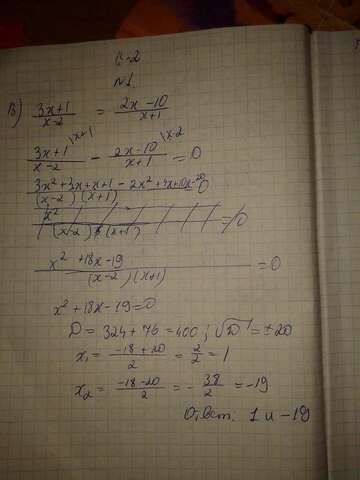 В-2
№1.
В) (3x+1)/(x-2) = (2x-10)/(x+1)
(3x+1)/(x-2) \x+1 - (2x-10)/(x+1) \x-2 = 0
(3x²+3x+x+1-2x²+4x+10x-20)/((x-2)(x+1)) = 0
x² /((x-2)(x+1)) = 0
(x² +18x-19)/((x-2)(x+1)) = 0
x²+18x-19=0
D = 324+76=400; √D = ±20
x₁ = (-18+20)/2 = 2/2 = 1
x₂ = (-18-20)/2 = -38/2 = -19
Ответ. 1 и -19